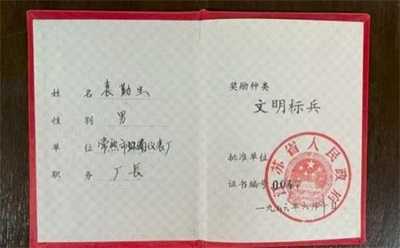 姓 名 袁勤生
性 别 男
单 位 常熟市 仪表厂
职 务 厂长
奖励种类
文明标兵
批准单位
江苏省人民政府
证书编号
一九八六年六月